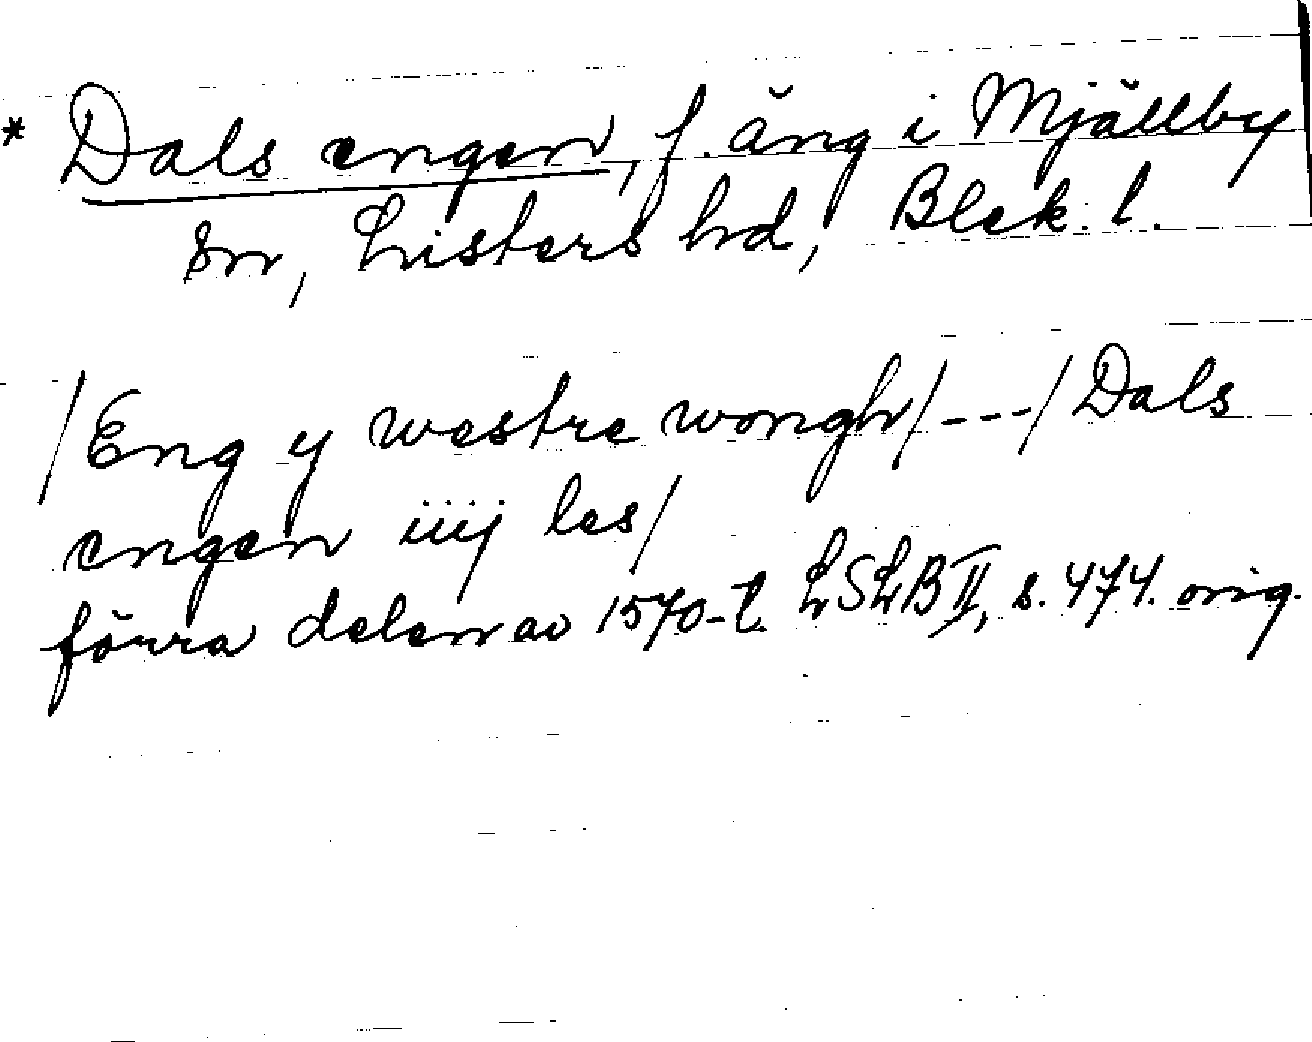 * Dals engen, f. äng i Mjällby
sn, Listers hd, Blek. l.
/Eng y westre wongh/---/Dals
engen iiij les/
förra delen av 1570-t. LSLB II, s. 474. orig.